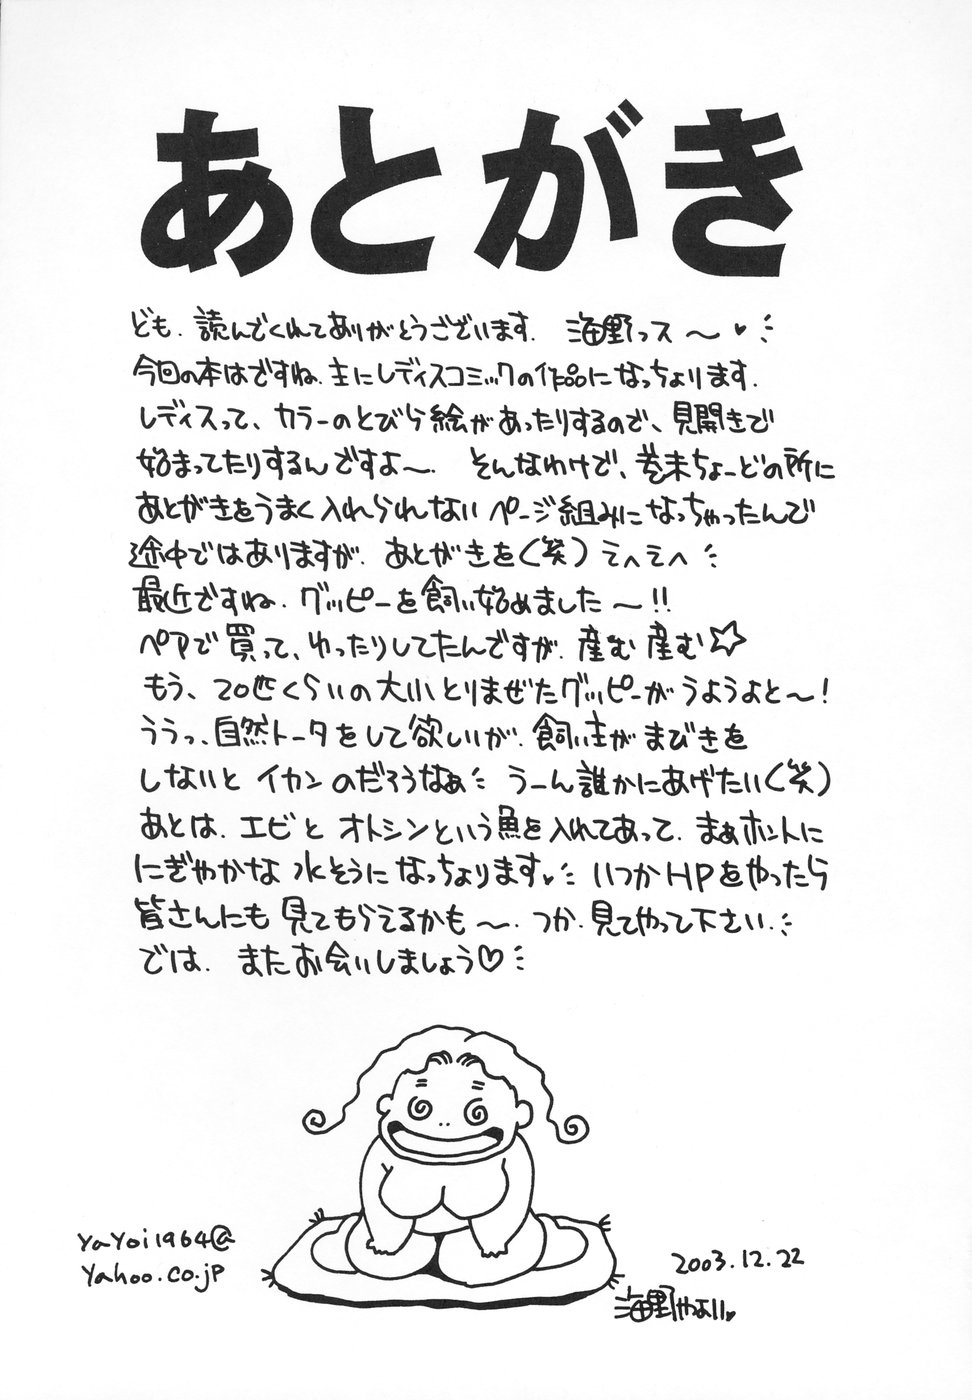 あとがき
ども.読んでくれてありがとうございます. 海野っス〜♥
今回の本はですね.主にレディスコミックの作品になっちょります.
レディスって、カラーのとびら絵があったりするので、見開きで
始まってたりするんですよ〜. そんなわけで、巻末ちょーどの所に
あとがきをうまく入れられないページ組みになっちゃったんで
途中ではありますが.あとがきを(笑)えへえへ
最近ですね.グッピーを飼い始めました〜!!
ペアで買って、ゆったりしてたんですが.産む産む☆
もう、20匹くらいの大小とりまぜたグッピーがうようよと〜!
ううっ、自然トータをして欲しいが.飼い主がまびきを
しないとイカンのだろうなぁ うーん誰かにあげたい(笑)
あとは.エビとオトシンという魚を入れてあって.まぁホントに
にぎやかな水そうになっちょります♥ いつかHPをやったら
皆さんにも見てもらえるかも〜. つか.見てやって下さい.
では. またお会いしましょう♡
yayoi1964@
yahoo.co.jp
2003.12.22
海野やよい♥